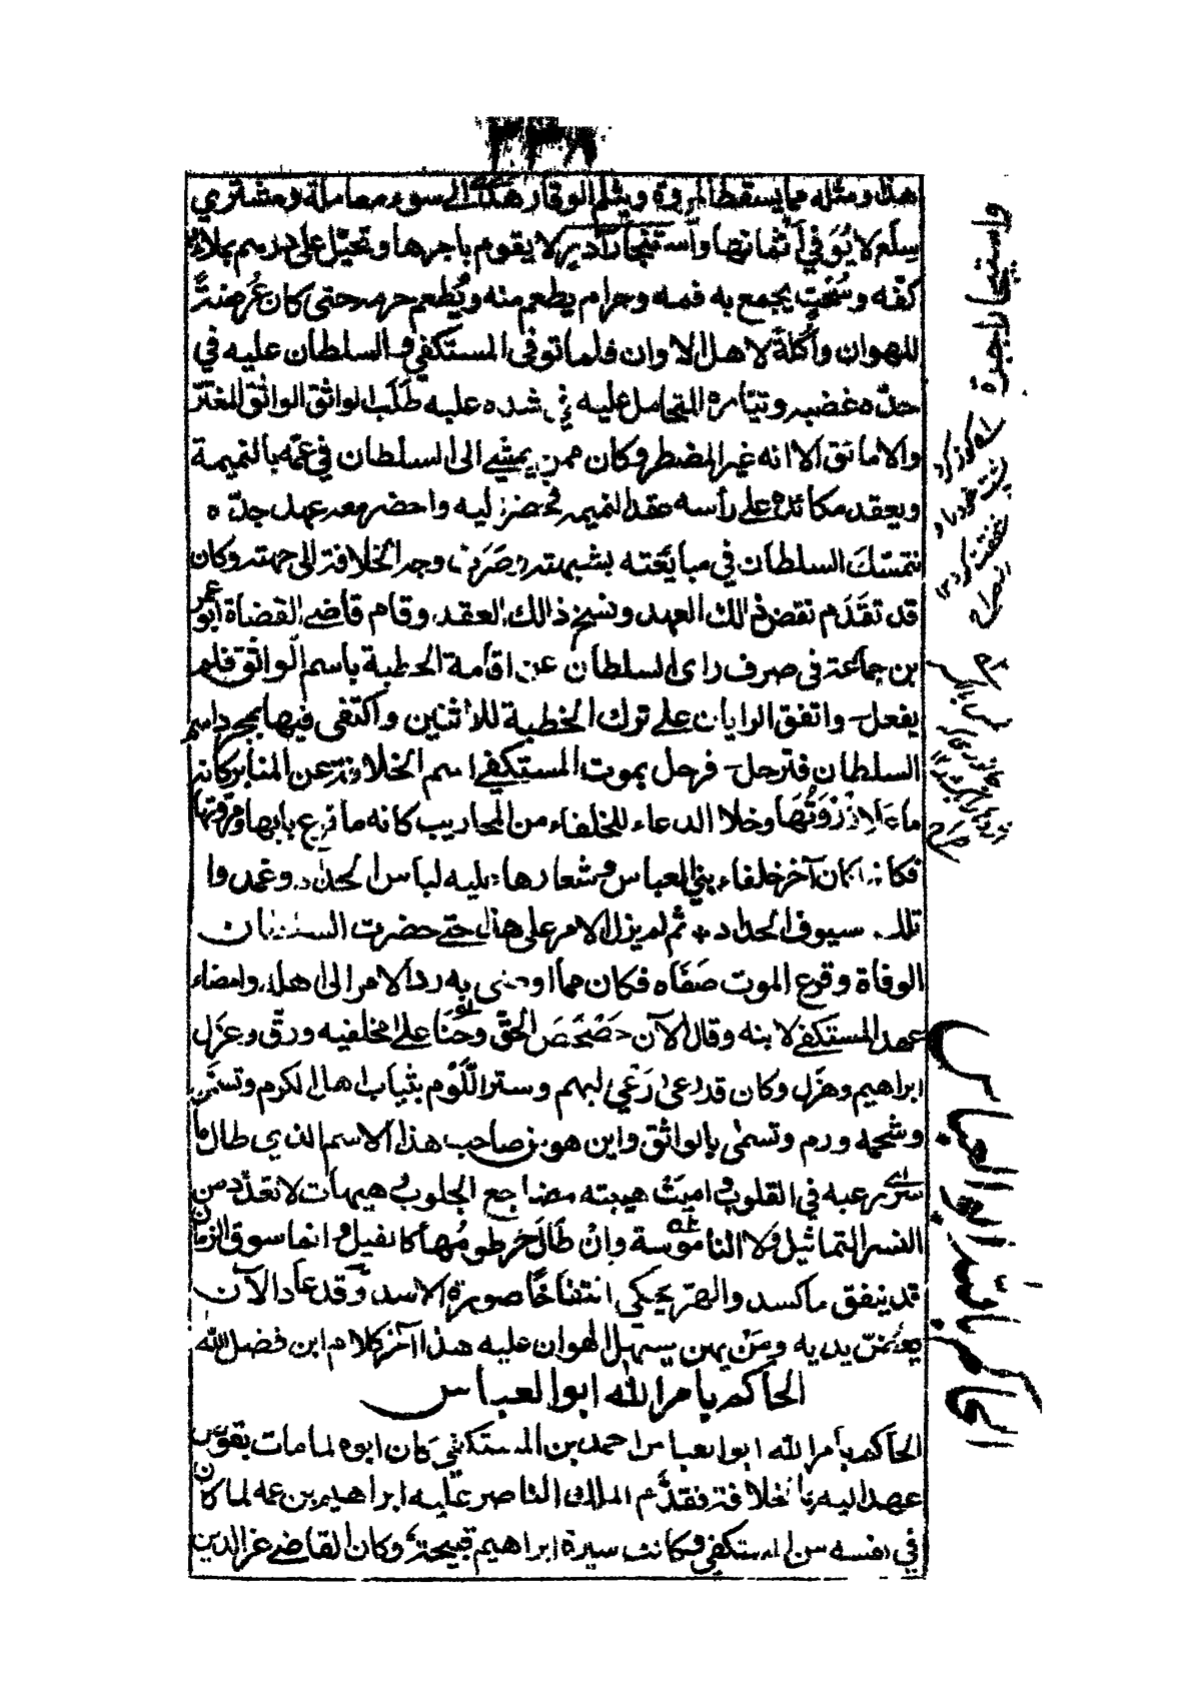 ٣٣٨
هذا ومثله مما يسقط المروة ويثلم الوقار هذا الى سوء معاملة ومشترى
سلع لا يُوَفي اثمانها واستئجار آدر لا يقوم باجرها وتحيّل على درهم يملاء به
كفّه وسُحْتٍ يجمع به فمه وحرام يطعم منه ويُطعم حرمه حتى كان عُرضةً
للهوان واُكلةً لاهل الاوان فلما توفى المستكفي والسلطان عليه في
حدّه غضبه وتيّاره المتحامل عليه في شده عليه طَلَب الواثق الواثق المغتر
والا مائق الا انه غير المضطر وكان ممن يمشي الى السلطان في عمّه بالنميمة
ويعقد مكائده على رأسه عقد التميمه فحضر اليه واحضر معه عهد جدّه
فتمسّك السلطان في مبايَعته بشبهته وصَرَف وجه الخلافة الى جهته وكان
قد تقَدَم نقض ذلك العهد ونسخ ذالك العقد وقام قاضي القضاة ابو عمر
بن جماعة في صرف راى السلطان عن اقامة الخطبة باسم الواثق فلم
يفعل واتفق الرايان على ترك الخطبة للاثنين واكتفى فيها بمجرد اسم
السلطان فترحل فرحل بموت المستكفي اسم الخلافة عن المنابر كانه
ما علا ذرْوَتُهَا وخلا الدعاء للخلفاء من المحاريب كانه ما قرع بابها ومروتها
فكانما كان آخر خلفاء بني العباس وشعارها عليه لباس الحداد وغمدوا
تلك سيوف الحداد ثم لم يزل الامر على هذا حتى حضرت السلطان
الوفاة وقرع الموت صَفَاه فكان مما اوصى به ردّ الامر الى اهله وامضاء
عهد المستكفي لابنه وقال الآن حَصْحَصَ الحقّ وحَنَا على مخلفيه ورقّ وعزل
ابراهيم وهزل وكان قد رعى رَعْي لبهم وستر اللُّوْم بثياب اهل الكرم وتسمّن
وشحمه ورم وتسمّى بالواثق واين هو من صاحب هذا الاسم الذي طال ما
سرى رعبه في القلوب واميت هيبته مضاجع الجلوب هيهات لا تعدّد من
النسر التماثيل ولا الناموسة وانْ طَالَ خرطومُها كالفيل وانما سوق الزمان
قد ينفق ما كسد والهرّ يحكي انتفاخًا صورة الاسد وقد عاد الآن
يعضّ يديه ومَنْ يهن يسهل الهوان عليه هذا آخر كلام ابن فضل الله
الحاكم بامر الله ابو العباس
الحاكم بامر الله ابو العباس احمد بن المستكفي كان ابوه لما مات بقوص
عهد اليه بالخلافة فقدّم الملك الناصر عليه ابراهيم بن عمه لما كان
في نفسه من المستكفي وكانت سيرة ابراهيم قبيحة وكان القاضي عز الدين
واستيجار اجره
صراح
صراح
الحاكم بامر الله ابو العباس